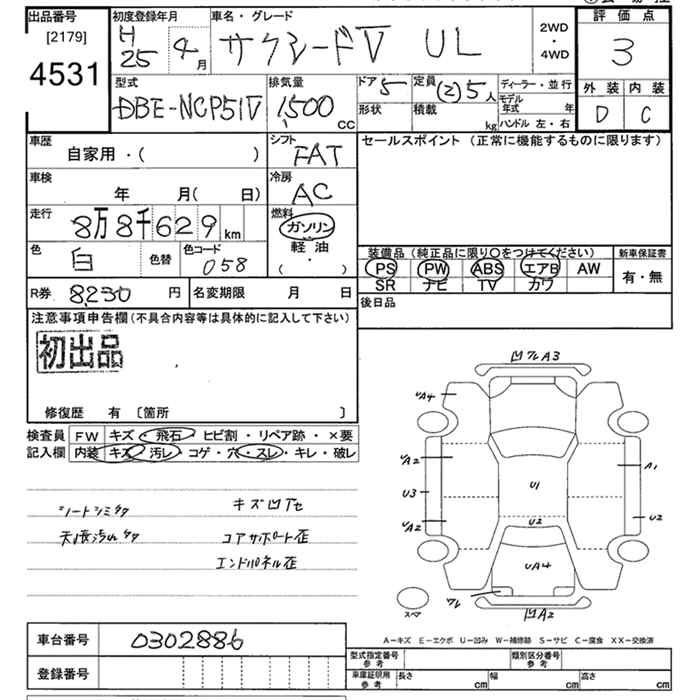 出品番号
[2179]
4531
初度登録年月
H 25 年 4 月
車名・グレード
サクシードV UL
2WD
・
4WD
評価点
3
外装 内装
D C
型式
DBE-NCP51V
排気量
1500 CC
ドア 5
定員 (2)5人
形状
積載 kg
ディーラー・並行
モデル年式 年
ハンドル 左・右
車歴
自家用・( )
シフト
FAT
セールスポイント (正常に機能するものに限ります)
車検
年 月( 日)
冷房
AC
走行
8万8千629 km
燃料
ガソリン
軽油
( ・ )
色 白
色替
色コード 058
装備品 (純正品に限り○をつけてください)
PS PW ABS エアB AW
SR ナビ TV カワ
新車保証書
有・無
R券 8230 円
名変期限 月 日
後日品
注意事項申告欄(不具合内容等は具体的に記入して下さい)
初出品
修復歴 有 〔箇所 〕
検査員記入欄
FW キズ・飛石・ヒビ割・リペア跡・×要
内装 キズ・汚レ・コゲ・穴・スレ・キレ・破レ
シートシミ
キズ凹
コアサポート歪
エンドパネル歪
A3
UA4
UA2
U3
UA2
U1
U2
UA4
A1
U2
A2
スペア
A-キズ E-エクボ U-凹み W-補修跡 S-サビ C-腐食 XX-交換済
車台番号 0302886
登録番号
型式指定番号 参考
類別区分番号 参考
車庫証明用 参考
長さ cm 幅 cm 高さ cm